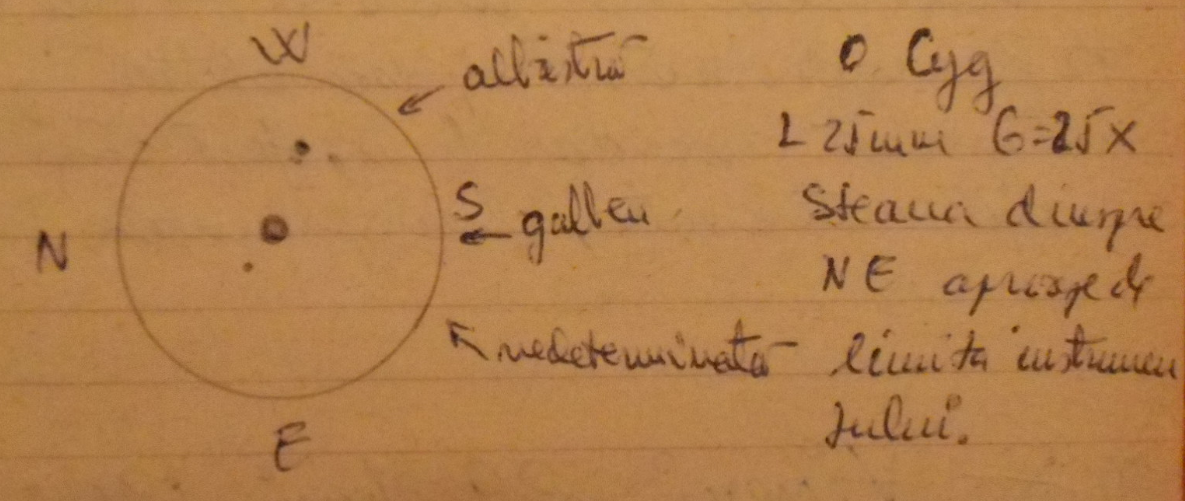 W
albastră
N
S
galben
nedeterminată
E
O Cyg
L 25mm G=25X
Steaua dinspre
NE aproape de
limita instrumen
tului.